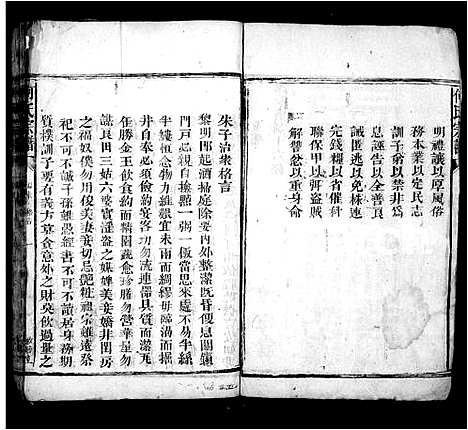 明禮讓以厚風俗
務本業以定民志
訓子弟以禁非為
息誣告以全善良
誡匿逃以免株連
完錢糧以省催科
聯保甲以弭盜賊
解讐忿以重身命
朱子治家格言
黎明即起灑掃庭除要內外整潔既昏便息關鎖
門戶必親自撿點一粥一飯當思來處不易半絲
半縷恒念物力維艱宜未雨而綢繆毋臨渴而掘
井自奉必須儉約宴客切勿流連器具質而潔瓦
缶勝金玉飲食約而精園蔬愈珍饈勿營華屋勿
謀良田三姑六婆實淫盜之媒婢美妾嬌非閨房
之福奴僕勿用俊美妻妾切忌艷粧祖宗雖遠祭
祀不可不誠子孫雖愚經書不可不讀居身務期
質樸訓子要有義方莫貪意外之財莫飲過量之